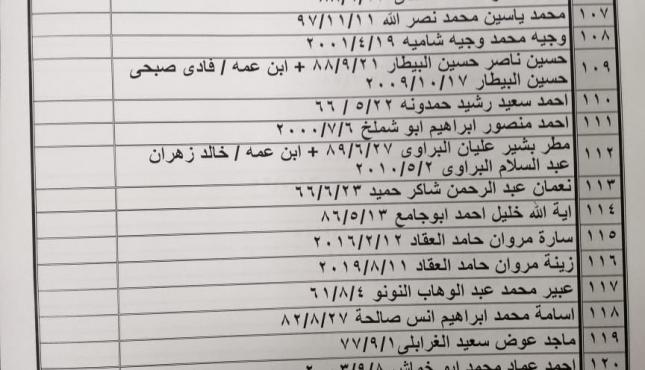 ١٠٧ محمد ياسين محمد نصر الله ٩٧/١١/١١
١٠٨ وجيه محمد وجيه شاميه ٢٠٠١/٤/١٩
١٠٩ حسين ناصر حسين البيطار ٨٨/٩/٢١ + ابن عمه / فادى صبحى
حسين البيطار ٢٠٠٩/١٠/١٧
١١٠ احمد سعيد رشيد حمدونه ٥/٢٢ / ٦٦
١١١ احمد منصور ابراهيم ابو شملخ ٢٠٠٠/٧/٦
١١٢ مطر بشير عليان البراوى ٨٩/٦/٢٧ + ابن عمه / خالد زهران
عبد السلام البراوى ٢٠١٠/٥/٢
١١٣ نعمان عبد الرحمن شاكر حميد ٦٦/٦/٢٣
١١٤ اية الله خليل احمد ابوجامع ٨٦/٥/١٣
١١٥ سارة مروان حامد العقاد ٢٠١٦/٢/١٢
١١٦ زينة مروان حامد العقاد ٢٠١٩/٨/١١
١١٧ عبير محمد عبد الوهاب النونو ٦١/٨/٤
١١٨ اسامة محمد ابراهيم انس صالحة ٨٢/٨/٢٧
١١٩ ماجد عوض سعيد الغرابلي ٧٧/٩/١
١٢٠ احمد عماد محمد ابو